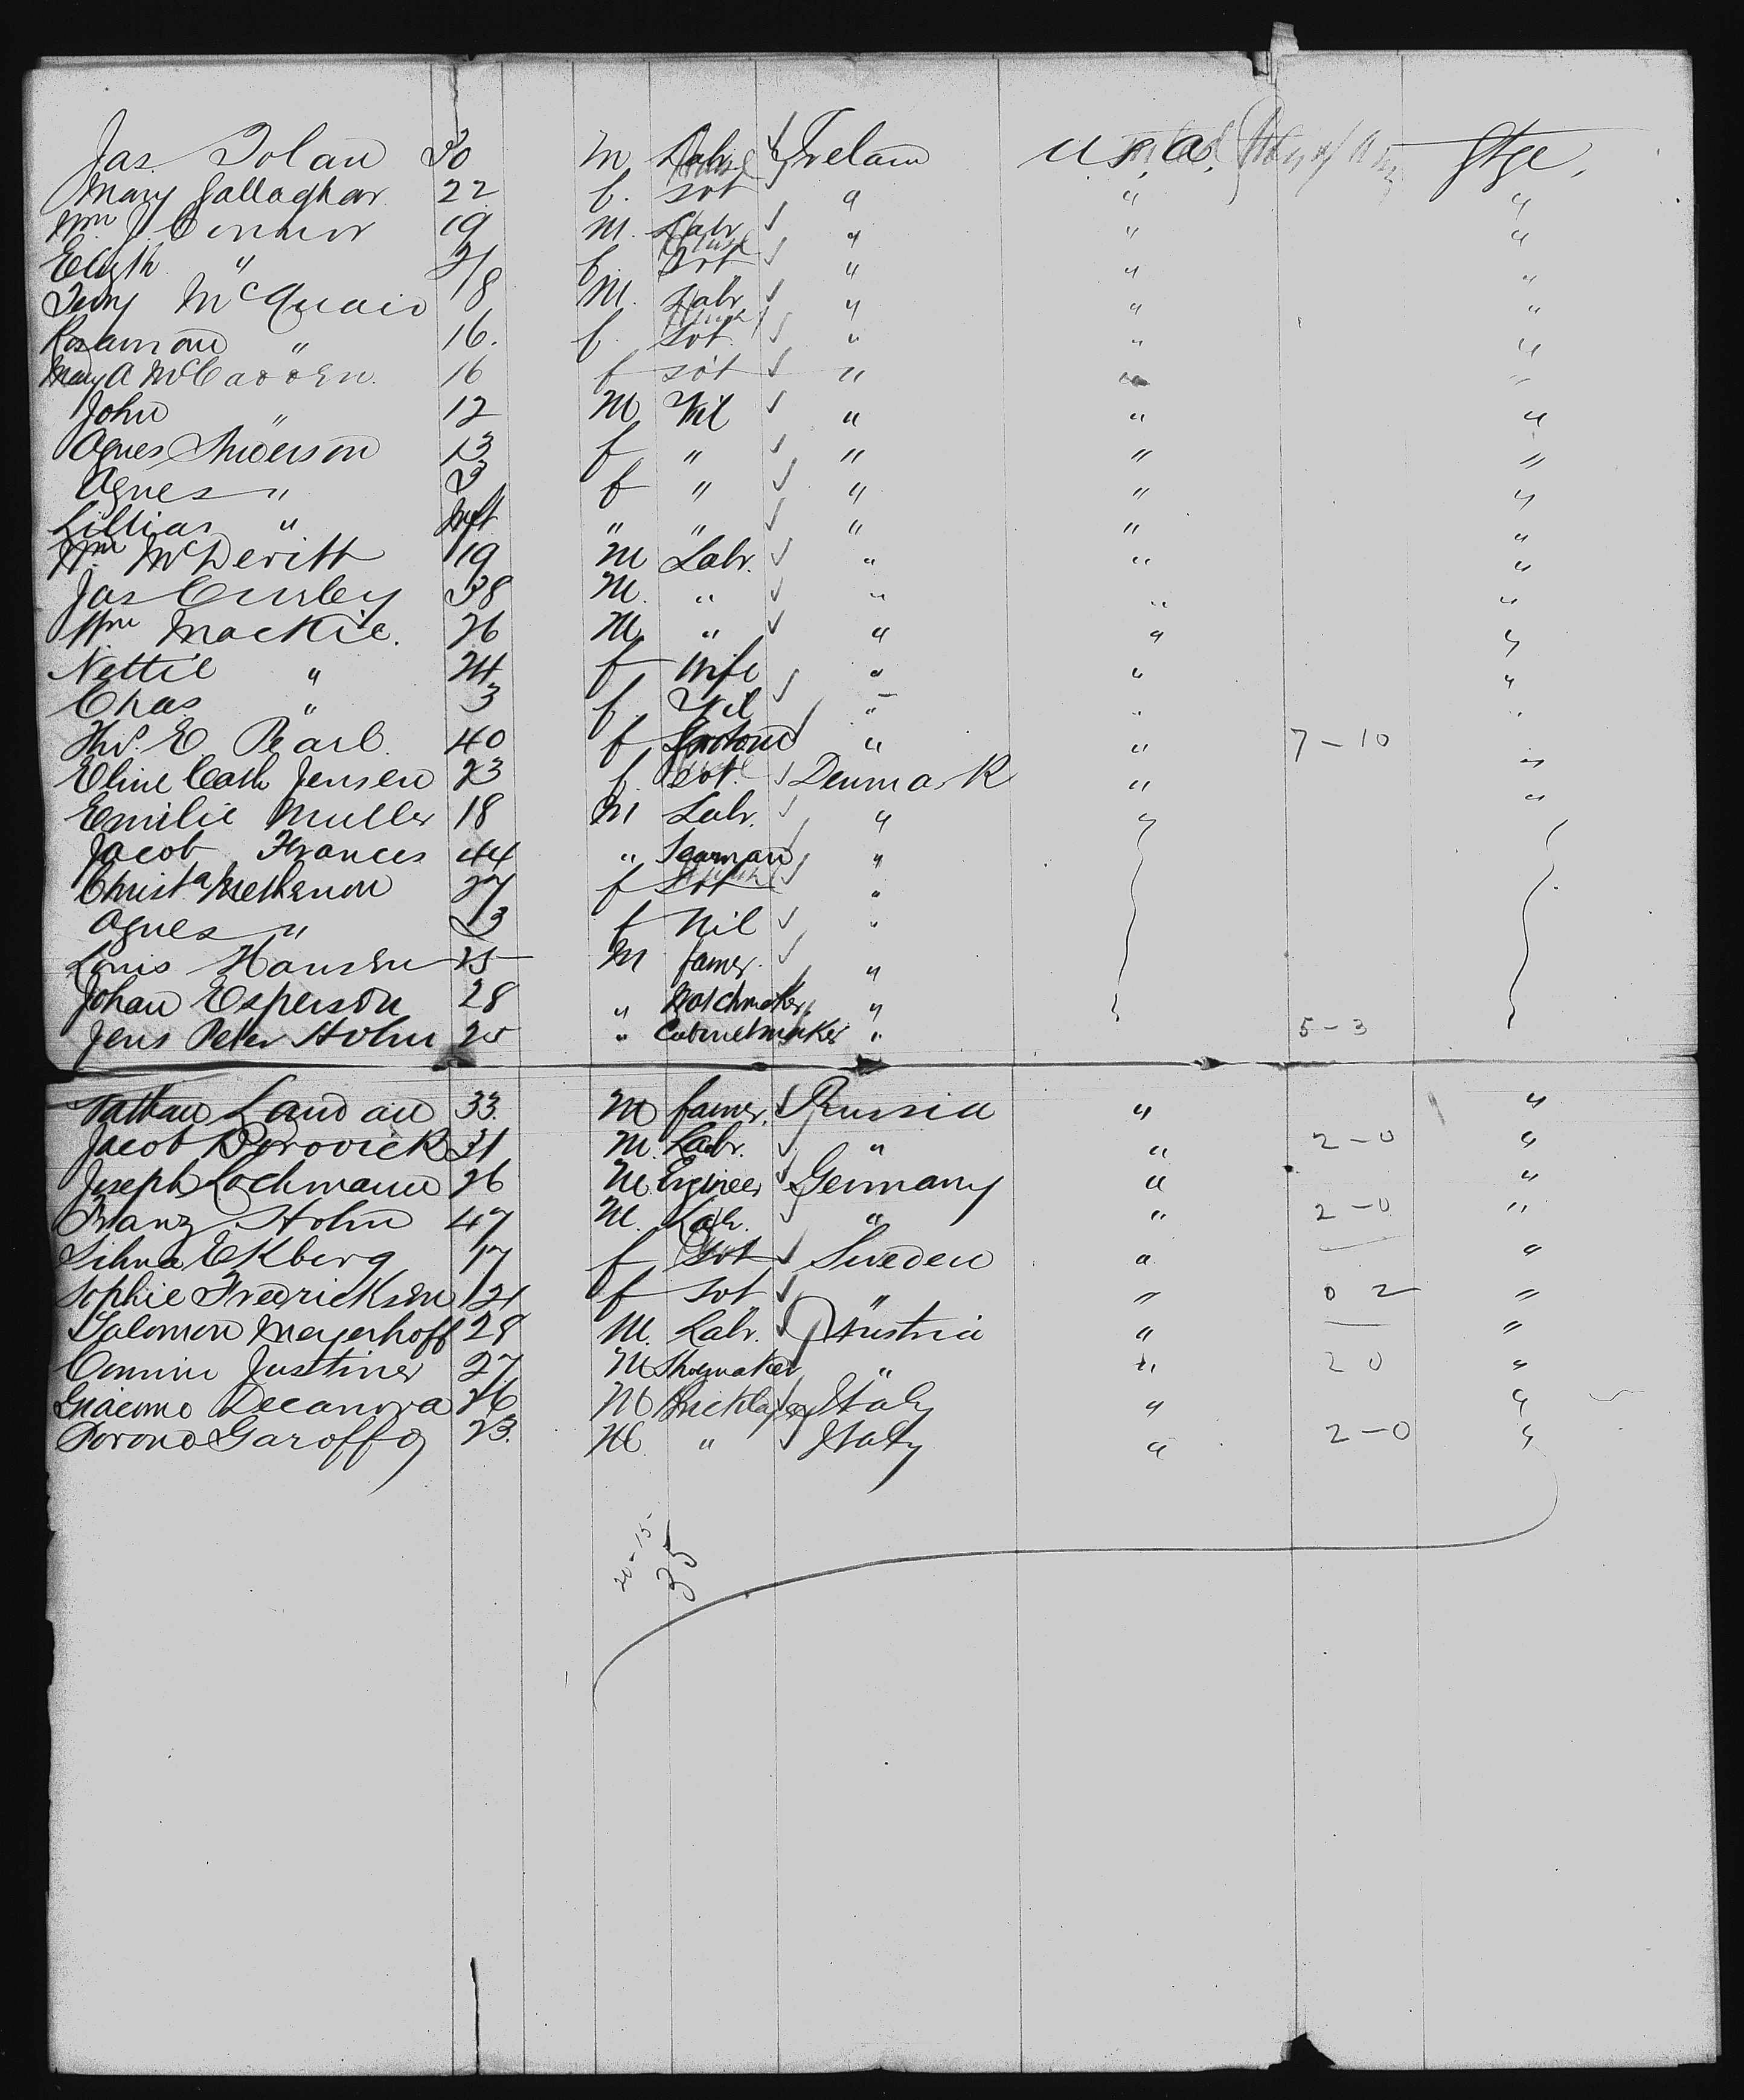 Jas. Dolan 30 M Labr. Ireland U.S.A. Stge.
Mary Gallaghar 22 f. svt " " "
Wm J. Connor 19 M. Labr " " "
Elizth " 21 f. Svt " " "
McQuaid 18 M. Labr " " "
Rosamond " 16. f. Svt. " " "
Mary A 16 f svt " " "
John " 12 M Nil " " "
Agnes Anderson 13 f " " " "
Agnes " 3 f " " " "
Lillias " Inft " " " " "
Wm McDevitt 19 M Labr. " " "
Jas Curley 38 M. " " " "
Wm Mackie. 26 M " " " "
Nettie " 24 f Wife " " "
Chas " 3 f Nil " " "
E. Pearl. 40 f " " 7-10 "
Eline Cath Jensen 23 f. Svt. Denmark " "
Emilie Muller 18 M Labr. " " "
Jacob Frances 44 " Seaman "
27 f Svt "
Agnes " f Nil "
Louis Hansen 25 M farmer. "
Johan Esperson 28 " Watchmaker "
Jens Peter Holm 25 " Cabinetmaker " 5-3
Nathan Landau 33. M farmer. Russia " "
Jacob Borovick 31 M. Labr. " " 2-0 "
Joseph Lochmann 26 M Engineer Germany " "
Franz Holm 47 M. Labr. " " 2-0 "
Ekberg 17 f Svt Sweden " "
Sophie Fredricksen 21 f Svt " " 0 2 "
Salomon Meyerhoff 28 M. Labr. Austria " "
Justiner 27 M Shoemaker " " 2 0 "
Giacomo Decanova 26 M Bricklayer Italy " "
Garoffo 23. M " Italy " 2-0 "
20-15-
35